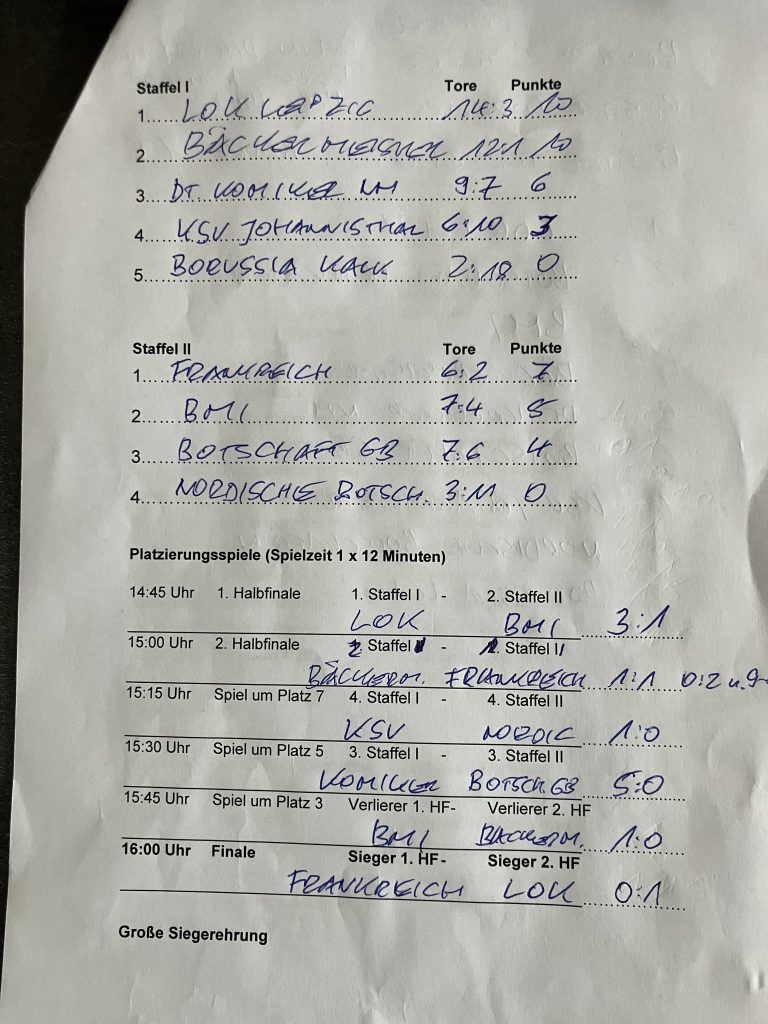 Staffel I Tore Punkte
1. LOK LEIPZIG 14:3 10
2. BÄCKERMEISTER 12:1 10
3. DT. KOMIKER NM 9:7 6
4. KSV JOHANNISTHAL 6:10 3
5. BORUSSIA KALK 2:18 0
Staffel II Tore Punkte
1. FRANKREICH 6:2 7
2. BMI 7:4 5
3. BOTSCHAFT GB 7:6 4
4. NORDISCHE BOTSCH. 3:11 0
Platzierungsspiele (Spielzeit 1 x 12 Minuten)
14:45 Uhr 1. Halbfinale 1. Staffel I - 2. Staffel II
LOK BMI 3:1
15:00 Uhr 2. Halbfinale 2. Staffel I - 1. Staffel II
BÄCKERM. FRANKREICH 1:1 0:2 n.9-
15:15 Uhr Spiel um Platz 7 4. Staffel I - 4. Staffel II
KSV NORDIC 1:0
15:30 Uhr Spiel um Platz 5 3. Staffel I - 3. Staffel II
KOMIKER BOTSCH.GB 5:0
15:45 Uhr Spiel um Platz 3 Verlierer 1. HF- Verlierer 2. HF
BMI BÄCKERM. 1:0
16:00 Uhr Finale Sieger 1. HF- Sieger 2. HF
FRANKREICH LOK 0:1
Große Siegerehrung